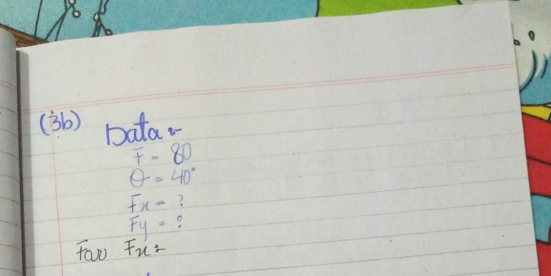 (3b)
Data :-
F = 80
θ = 40°
Fx = ?
Fy = ?
For Fx =